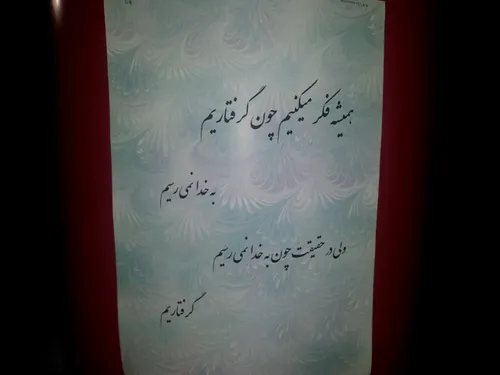 همیشه فکر میکنیم چون گرفتاریم
به خدا نمی رسیم
ولی در حقیقت چون به خدا نمی رسیم
گرفتاریم